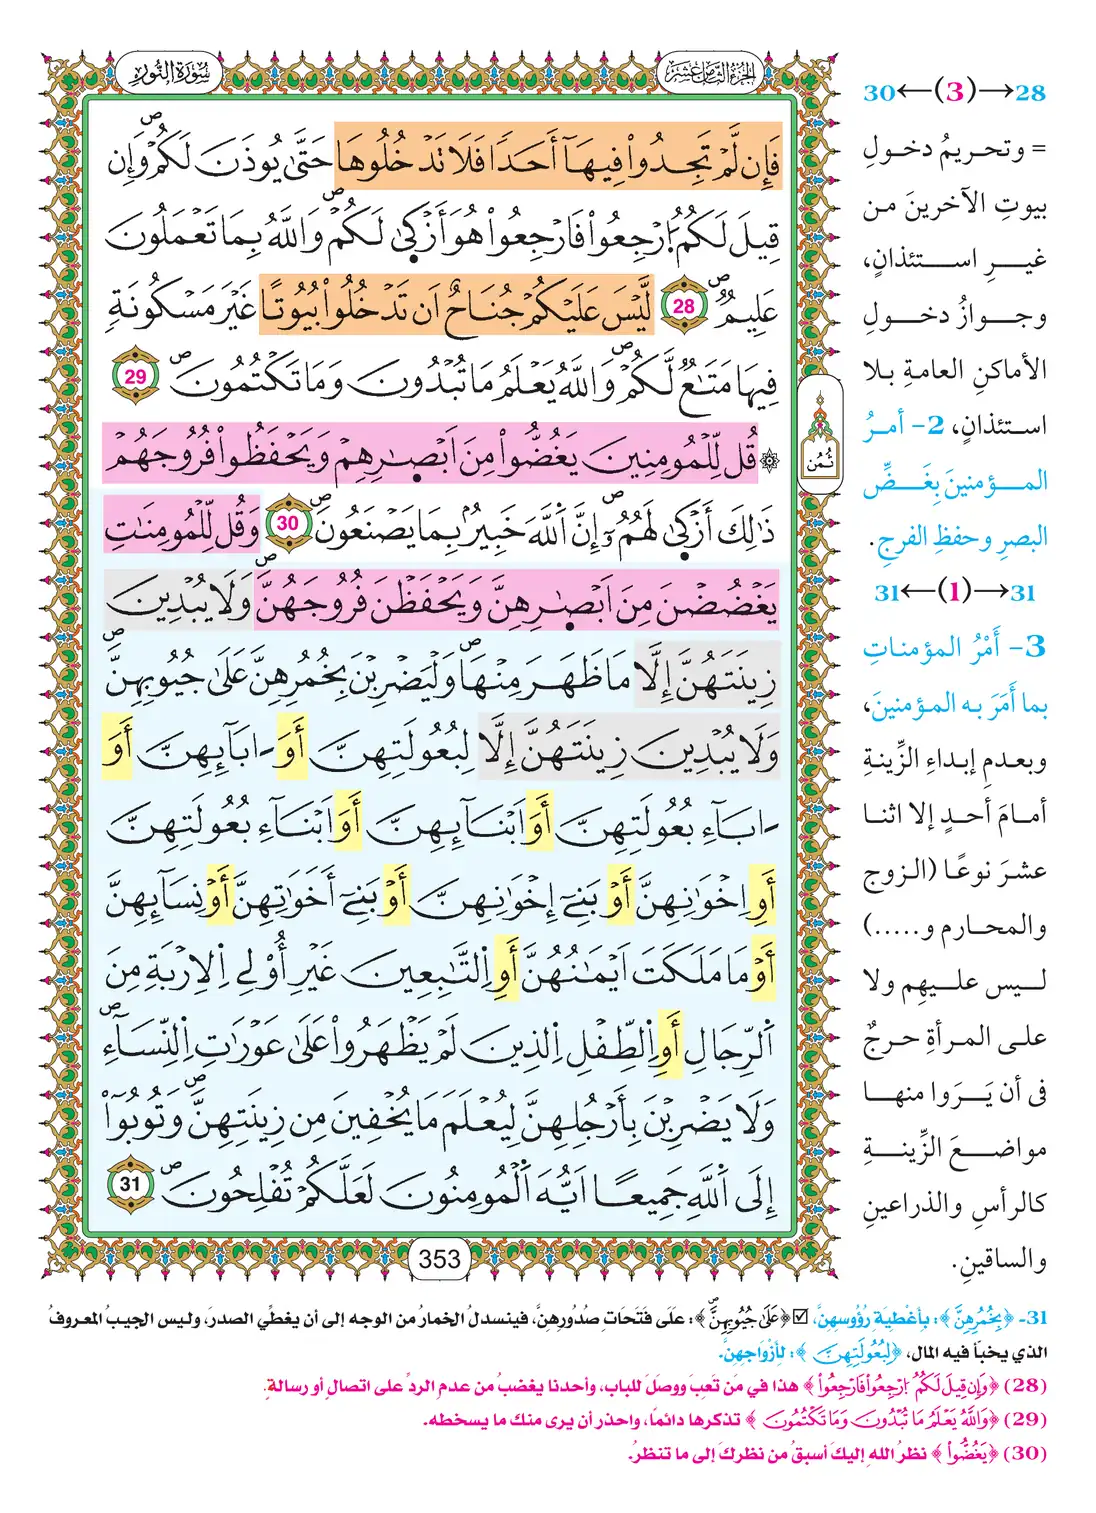 سُورَةُ النُّورِ
الجُزْءُ الثَّامِنَ عَشَرَ
فَإِن لَّمْ تَجِدُواْ فِيهَآ أَحَدًا فَلَا تَدْخُلُوهَا حَتَّىٰ يُوذَنَ لَكُمْ وَإِن
قِيلَ لَكُمُ اُ۪رْجِعُواْ فَارْجِعُواْ هُوَ أَزْكَىٰ لَكُمْ وَاللَّهُ بِمَا تَعْمَلُونَ
عَلِيمٌ 28 لَّيْسَ عَلَيْكُمْ جُنَاحٌ اَن تَدْخُلُواْ بُيُوتًا غَيْرَ مَسْكُونَةٍ
فِيهَا مَتَٰعٌ لَّكُمْ وَاللَّهُ يَعْلَمُ مَا تُبْدُونَ وَمَا تَكْتُمُونَ 29
۞ قُل لِّلْمُومِنِينَ يَغُضُّواْ مِنَ اَبْصٰ۪رِهِمْ وَيَحْفَظُواْ فُرُوجَهُمْ
ذَٰلِكَ أَزْكَىٰ لَهُمُۥ إِنَّ اَللَّهَ خَبِيرٌۢ بِمَا يَصْنَعُونَ 30 وَقُل لِّلْمُومِنَٰتِ
يَغْضُضْنَ مِنَ اَبْصٰ۪رِهِنَّ وَيَحْفَظْنَ فُرُوجَهُنَّ وَلَا يُبْدِينَ
زِينَتَهُنَّ إِلَّا مَا ظَهَرَ مِنْهَا وَلْيَضْرِبْنَ بِخُمُرِهِنَّ عَلَىٰ جُيُوبِهِنَّ
وَلَا يُبْدِينَ زِينَتَهُنَّ إِلَّا لِبُعُولَتِهِنَّ أَوَ ـابَآئِهِنَّ أَوَ
ـابَآءِ بُعُولَتِهِنَّ أَوَ اَبْنَآئِهِنَّ أَوَ اَبْنَآءِ بُعُولَتِهِنَّ
أَوِ اِخْوَٰنِهِنَّ أَوْ بَنِےٓ إِخْوَٰنِهِنَّ أَوْ بَنِےٓ أَخَوَٰتِهِنَّ أَوْ نِسَآئِهِنَّ
أَوْ مَا مَلَكَتَ اَيْمَٰنُهُنَّ أَوِ اِلتَّٰبِعِينَ غَيْرِ أُوْلِے اِلِارْبَةِ مِنَ
اَلرِّجَالِ أَوِ اِلطِّفْلِ اِلذِينَ لَمْ يَظْهَرُواْ عَلَىٰ عَوْرَٰتِ اِلنِّسَآءِ
وَلَا يَضْرِبْنَ بِأَرْجُلِهِنَّ لِيُعْلَمَ مَا يُخْفِينَ مِن زِينَتِهِنَّ وَتُوبُوٓاْ
إِلَى اَللَّهِ جَمِيعًا اَيُّهَ اَلْمُومِنُونَ لَعَلَّكُمْ تُفْلِحُونَ 31
ثُمُن
353
28→(3)←30
= وتحريمُ دخولِ
بيوتِ الآخرينَ من
غيرِ استئذانٍ،
وجوازُ دخولِ
الأماكنِ العامةِ بلا
استئذانٍ، 2- أمرُ
المؤمنينَ بِغَضِّ
البصرِ وحفظِ الفرجِ.
31→(1)←31
3- أَمْرُ المؤمناتِ
بما أَمَرَ به المؤمنينَ،
وبعدمِ إبداءِ الزِّينةِ
أمامَ أحدٍ إلا اثنا
عشرَ نوعًا (الزوج
والمحارم و.....)
ليس عليهِم ولا
على المرأةِ حرجٌ
فى أن يَرَوا منها
مواضعَ الزِّينةِ
كالرأسِ والذراعينِ
والساقينِ.
31- ﴿بِخُمُرِهِنَّ﴾: بأغْطِيَةِ رُؤُوسِهِنَّ، ☑ ﴿عَلَىٰ جُيُوبِهِنَّ﴾: علَى فَتَحَاتِ صُدُورِهِنَّ، فينسدلُ الخمارُ من الوجهِ إلى أن يغطِّي الصدرَ، وليس الجيبُ المعروفُ
الذي يخبأ فيه المال، ﴿لِبُعُولَتِهِنَّ﴾: لأزْوَاجِهِنَّ.
(28) ﴿وَإِن قِيلَ لَكُمُ اُ۪رْجِعُواْ فَارْجِعُواْ﴾ هذا في مَن تَعِبَ ووصلَ للباب، وأحدنا يغضبُ من عدمِ الردِّ على اتصالٍ أو رسالةٍ.
(29) ﴿وَاللَّهُ يَعْلَمُ مَا تُبْدُونَ وَمَا تَكْتُمُونَ﴾ تذكرها دائمًا، واحذر أن يرى منك ما يسخطه.
(30) ﴿يَغُضُّواْ﴾ نظرُ اللهِ إليكَ أسبقُ من نظركَ إلى ما تنظرُ.